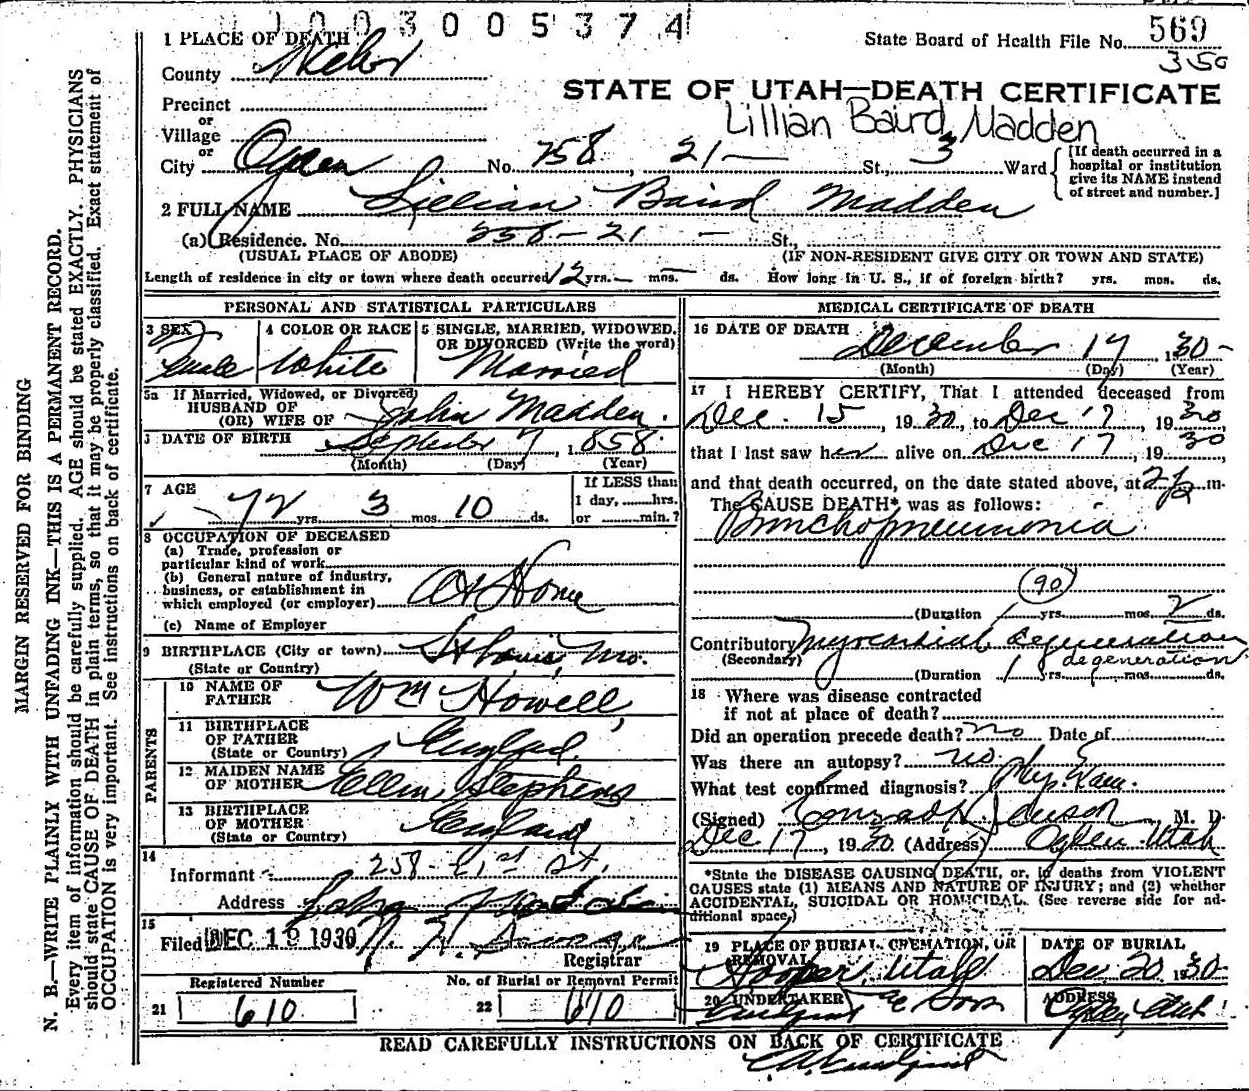 1003005374
1 PLACE OF DEATH
State Board of Health File No. 569
350
County Weber
STATE OF UTAH—DEATH CERTIFICATE
Precinct
or
Village
Lillian Baird Madden
or
City Ogden No. 258, 21 — St., 3 Ward
[If death occurred in a hospital or institution give its NAME instead of street and number.]
2 FULL NAME Lillian Baird Madden
(a) Residence. No. 258 - 21 - St.,
(USUAL PLACE OF ABODE) (IF NON-RESIDENT GIVE CITY OR TOWN AND STATE)
Length of residence in city or town where death occurred 12 yrs. — mos. — ds. How long in U. S., if of foreign birth? yrs. mos. ds.
MARGIN RESERVED FOR BINDING
N. B.—WRITE PLAINLY WITH UNFADING INK—THIS IS A PERMANENT RECORD.
Every item of information should be carefully supplied. AGE should be stated EXACTLY. PHYSICIANS
should state CAUSE OF DEATH in plain terms, so that it may be properly classified. Exact statement of
OCCUPATION is very important. See instructions on back of certificate.
PERSONAL AND STATISTICAL PARTICULARS
3 SEX
Female
4 COLOR OR RACE
White
5 SINGLE, MARRIED, WIDOWED, OR DIVORCED (Write the word)
Married
5a If Married, Widowed, or Divorced
HUSBAND OF
(OR) WIFE OF John Madden.
DATE OF BIRTH September 7, 1858
(Month) (Day) (Year)
7 AGE
72 yrs. 3 mos. 10 ds.
If LESS than
1 day, hrs.
or min.?
8 OCCUPATION OF DECEASED
(a) Trade, profession or
particular kind of work
(b) General nature of industry,
business, or establishment in
which employed (or employer) At Home
(c) Name of Employer
9 BIRTHPLACE (City or town) St Louis, Mo.
(State or Country)
PARENTS
10 NAME OF FATHER Wm Howell,
11 BIRTHPLACE OF FATHER England.
(State or Country)
12 MAIDEN NAME OF MOTHER Ellen Stephens
13 BIRTHPLACE OF MOTHER England
(State or Country)
14
Informant 258 - 21st St.
Address
15
Filed DEC 19 1930
Registrar
Registered Number
21 610
No. of Burial or Removal Permit
22 610
MEDICAL CERTIFICATE OF DEATH
16 DATE OF DEATH
December 17, 1930
(Month) (Day) (Year)
17 I HEREBY CERTIFY, That I attended deceased from
Dec. 15, 1930, to Dec 17, 1930
that I last saw her alive on Dec 17, 1930
and that death occurred, on the date stated above, at m.
The CAUSE DEATH* was as follows:
Bronchopneumonia
90
(Duration yrs. mos. 2 ds.
Contributory Myocardial degeneration
(Secondary) degeneration
(Duration 1 yrs. mos. ds.
18 Where was disease contracted
if not at place of death?
Did an operation precede death? no Date of
Was there an autopsy? no.
What test confirmed diagnosis? Phys. Exam.
(Signed) Conrad H Jenson, M. D.
Dec 17, 1930 (Address) Ogden Utah
*State the DISEASE CAUSING DEATH, or, in deaths from VIOLENT
CAUSES state (1) MEANS AND NATURE OF INJURY; and (2) whether
ACCIDENTAL, SUICIDAL OR HOMICIDAL. (See reverse side for additional space.)
19 PLACE OF BURIAL, CREMATION, OR REMOVAL
Hooper, Utah
DATE OF BURIAL
Dec 20 1930
20 UNDERTAKER
Lindquist & Sons
ADDRESS
Ogden Utah
READ CAREFULLY INSTRUCTIONS ON BACK OF CERTIFICATE